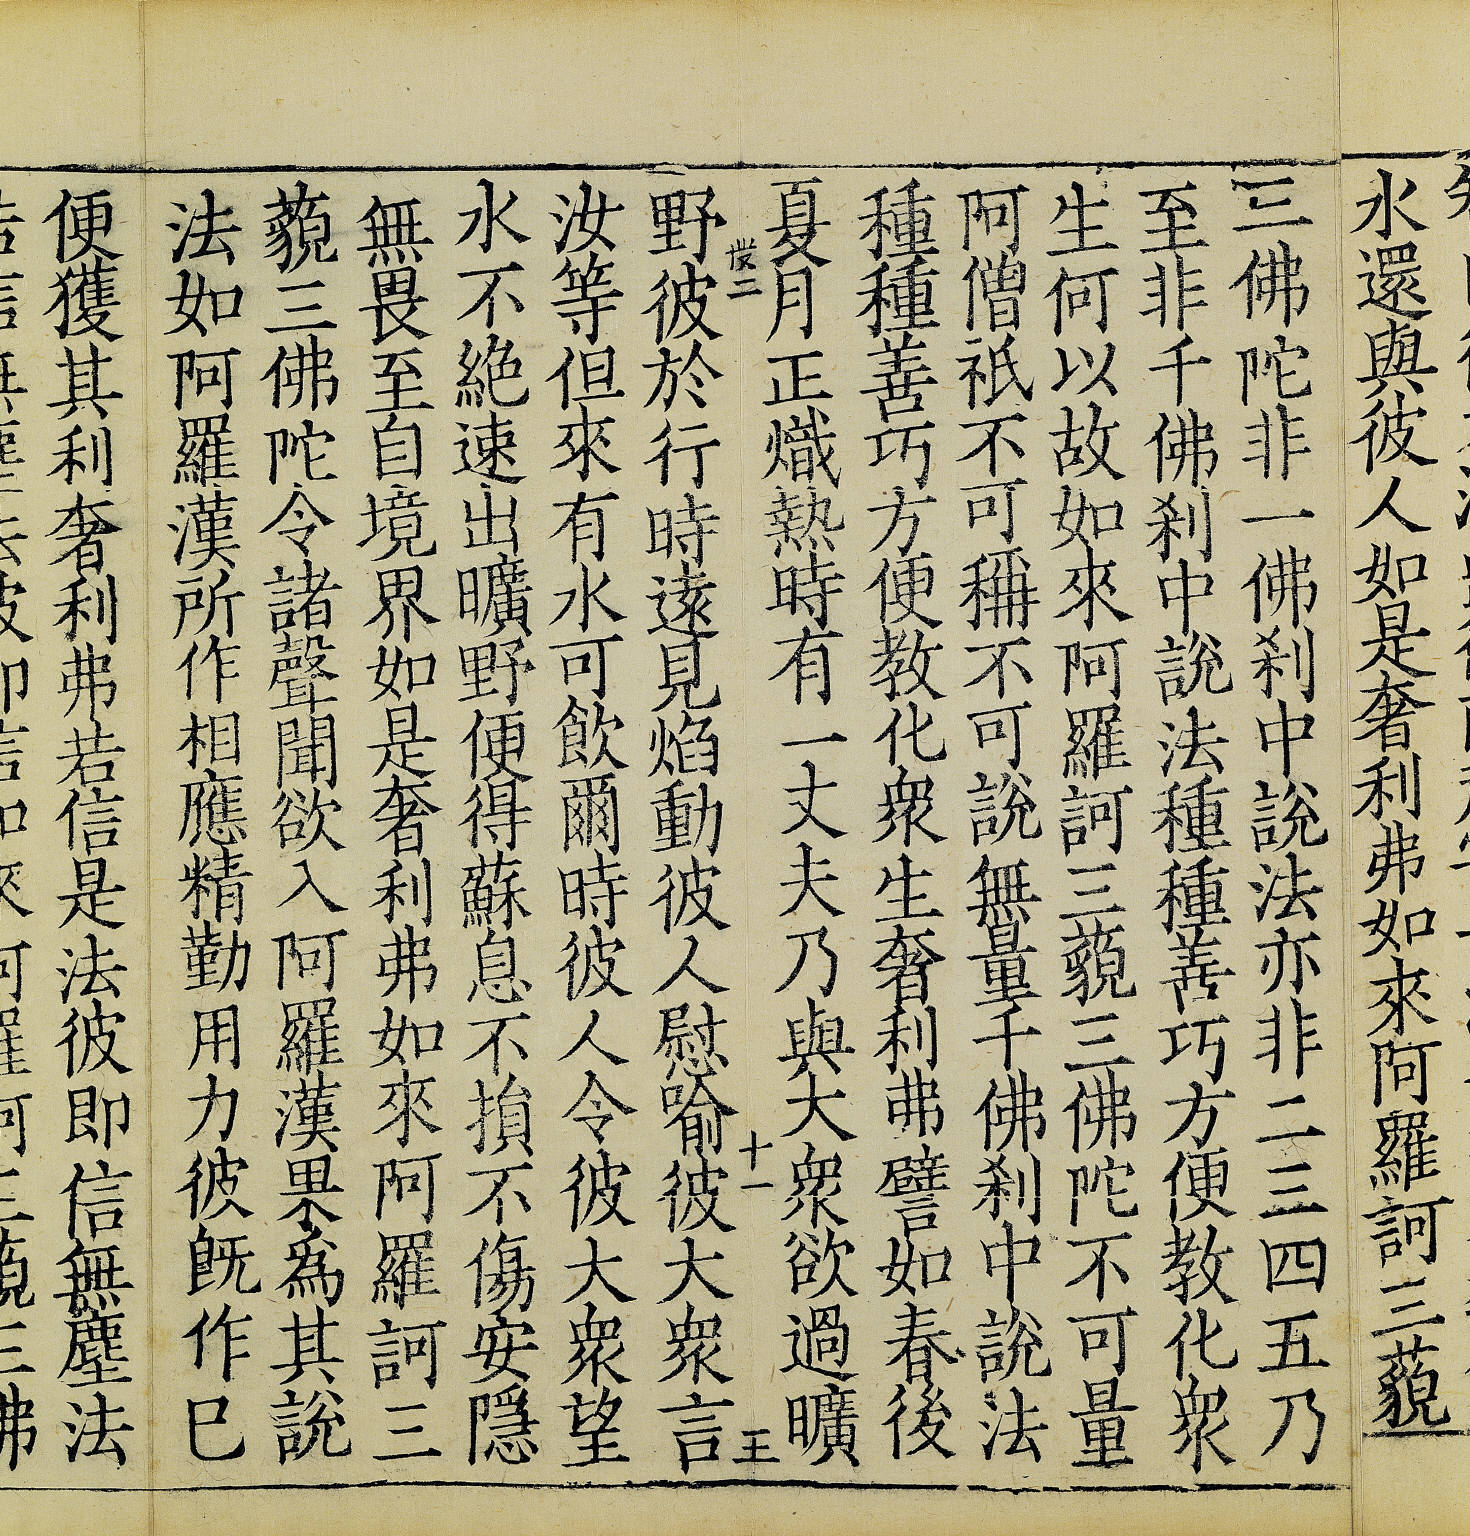 水還與彼人如是奢利弗如來阿羅訶三藐
三佛陀非一佛刹中說法亦非二三四五乃
至非千佛刹中說法種種善巧方便教化衆
生何以故如來阿羅訶三藐三佛陀不可量
阿僧祇不可稱不可說無量千佛刹中說法
種種善巧方便教化衆生奢利弗譬如春後
夏月正熾熱時有一丈夫乃與大衆欲過曠
十一
王
野彼於行時遠見焰動彼人慰喻彼大衆言
汝等但來有水可飲爾時彼人令彼大衆望
水不絕速出曠野便得蘇息不損不傷安隱
無畏至自境界如是奢利弗如來阿羅訶三
藐三佛陀令諸聲聞欲入阿羅漢果爲其說
法如阿羅漢所作相應精勤用力彼既作已
便獲其利奢利弗若信是法彼即信無塵法